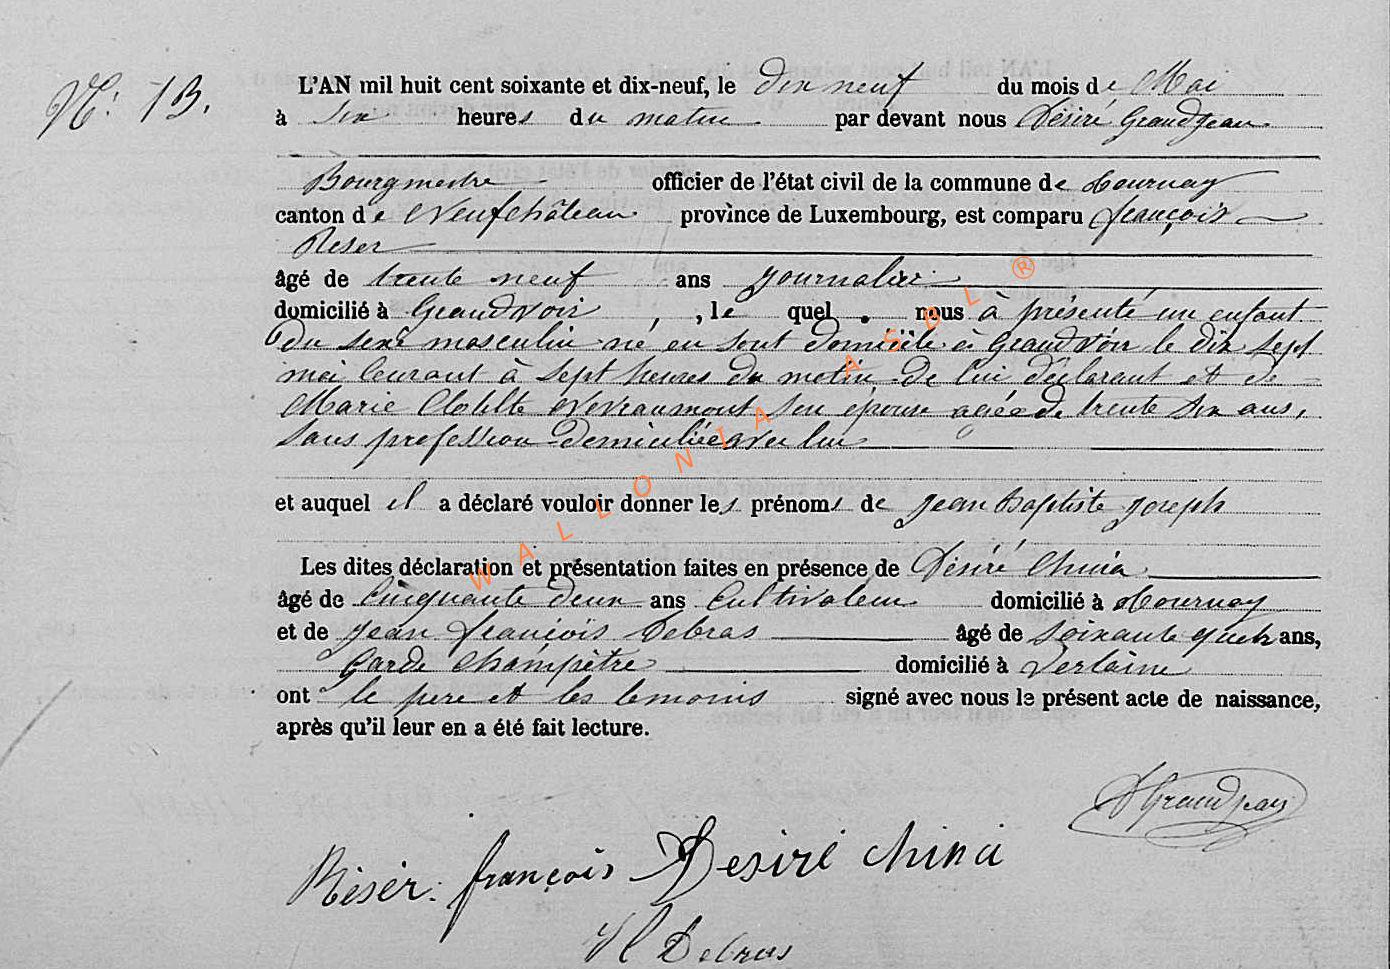 N: 13.
L'AN mil huit cent soixante et dix-neuf, le dix neuf du mois de Mai
à six heures du matin par devant nous Désiré Grandjean
Bourgmestre officier de l'état civil de la commune de Tournay
canton de Neufchâteau province de Luxembourg, est comparu François
Reser
âgé de trente neuf ans journalier
domicilié à Grandvoir, le quel nous à présenté un enfant
du sexe masculin né en sont domicile à Grandvoir le dix sept
mai courant à sept heures du matin de lui déclarant et de
Marie Clotilte Nevraumont son épouse agée de trente six ans,
sans profession domiciliée avec lui
et auquel il a déclaré vouloir donner les prénoms de Jean Baptiste Joseph
Les dites déclaration et présentation faites en présence de Désiré China
âgé de Cinquante deux ans Cultivateur domicilié à Tournay
et de Jean François Debras âgé de soixante ans,
Garde Champêtre domicilié à Verlaine
ont le pere et les temoins signé avec nous le présent acte de naissance,
après qu'il leur en a été fait lecture.
DGrandjean
Résér. françois Desiré china
Debras
WALLONIA ASBL ®